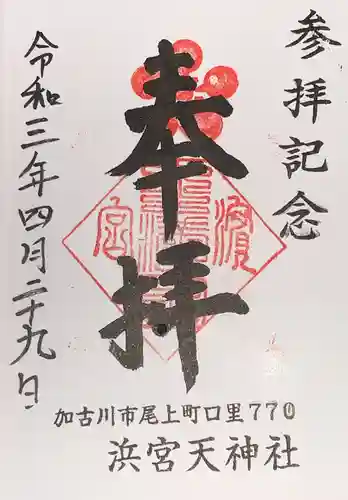 参拝記念
奉拝
令和三年四月二十九日
加古川市尾上町口里770
浜宮天神社